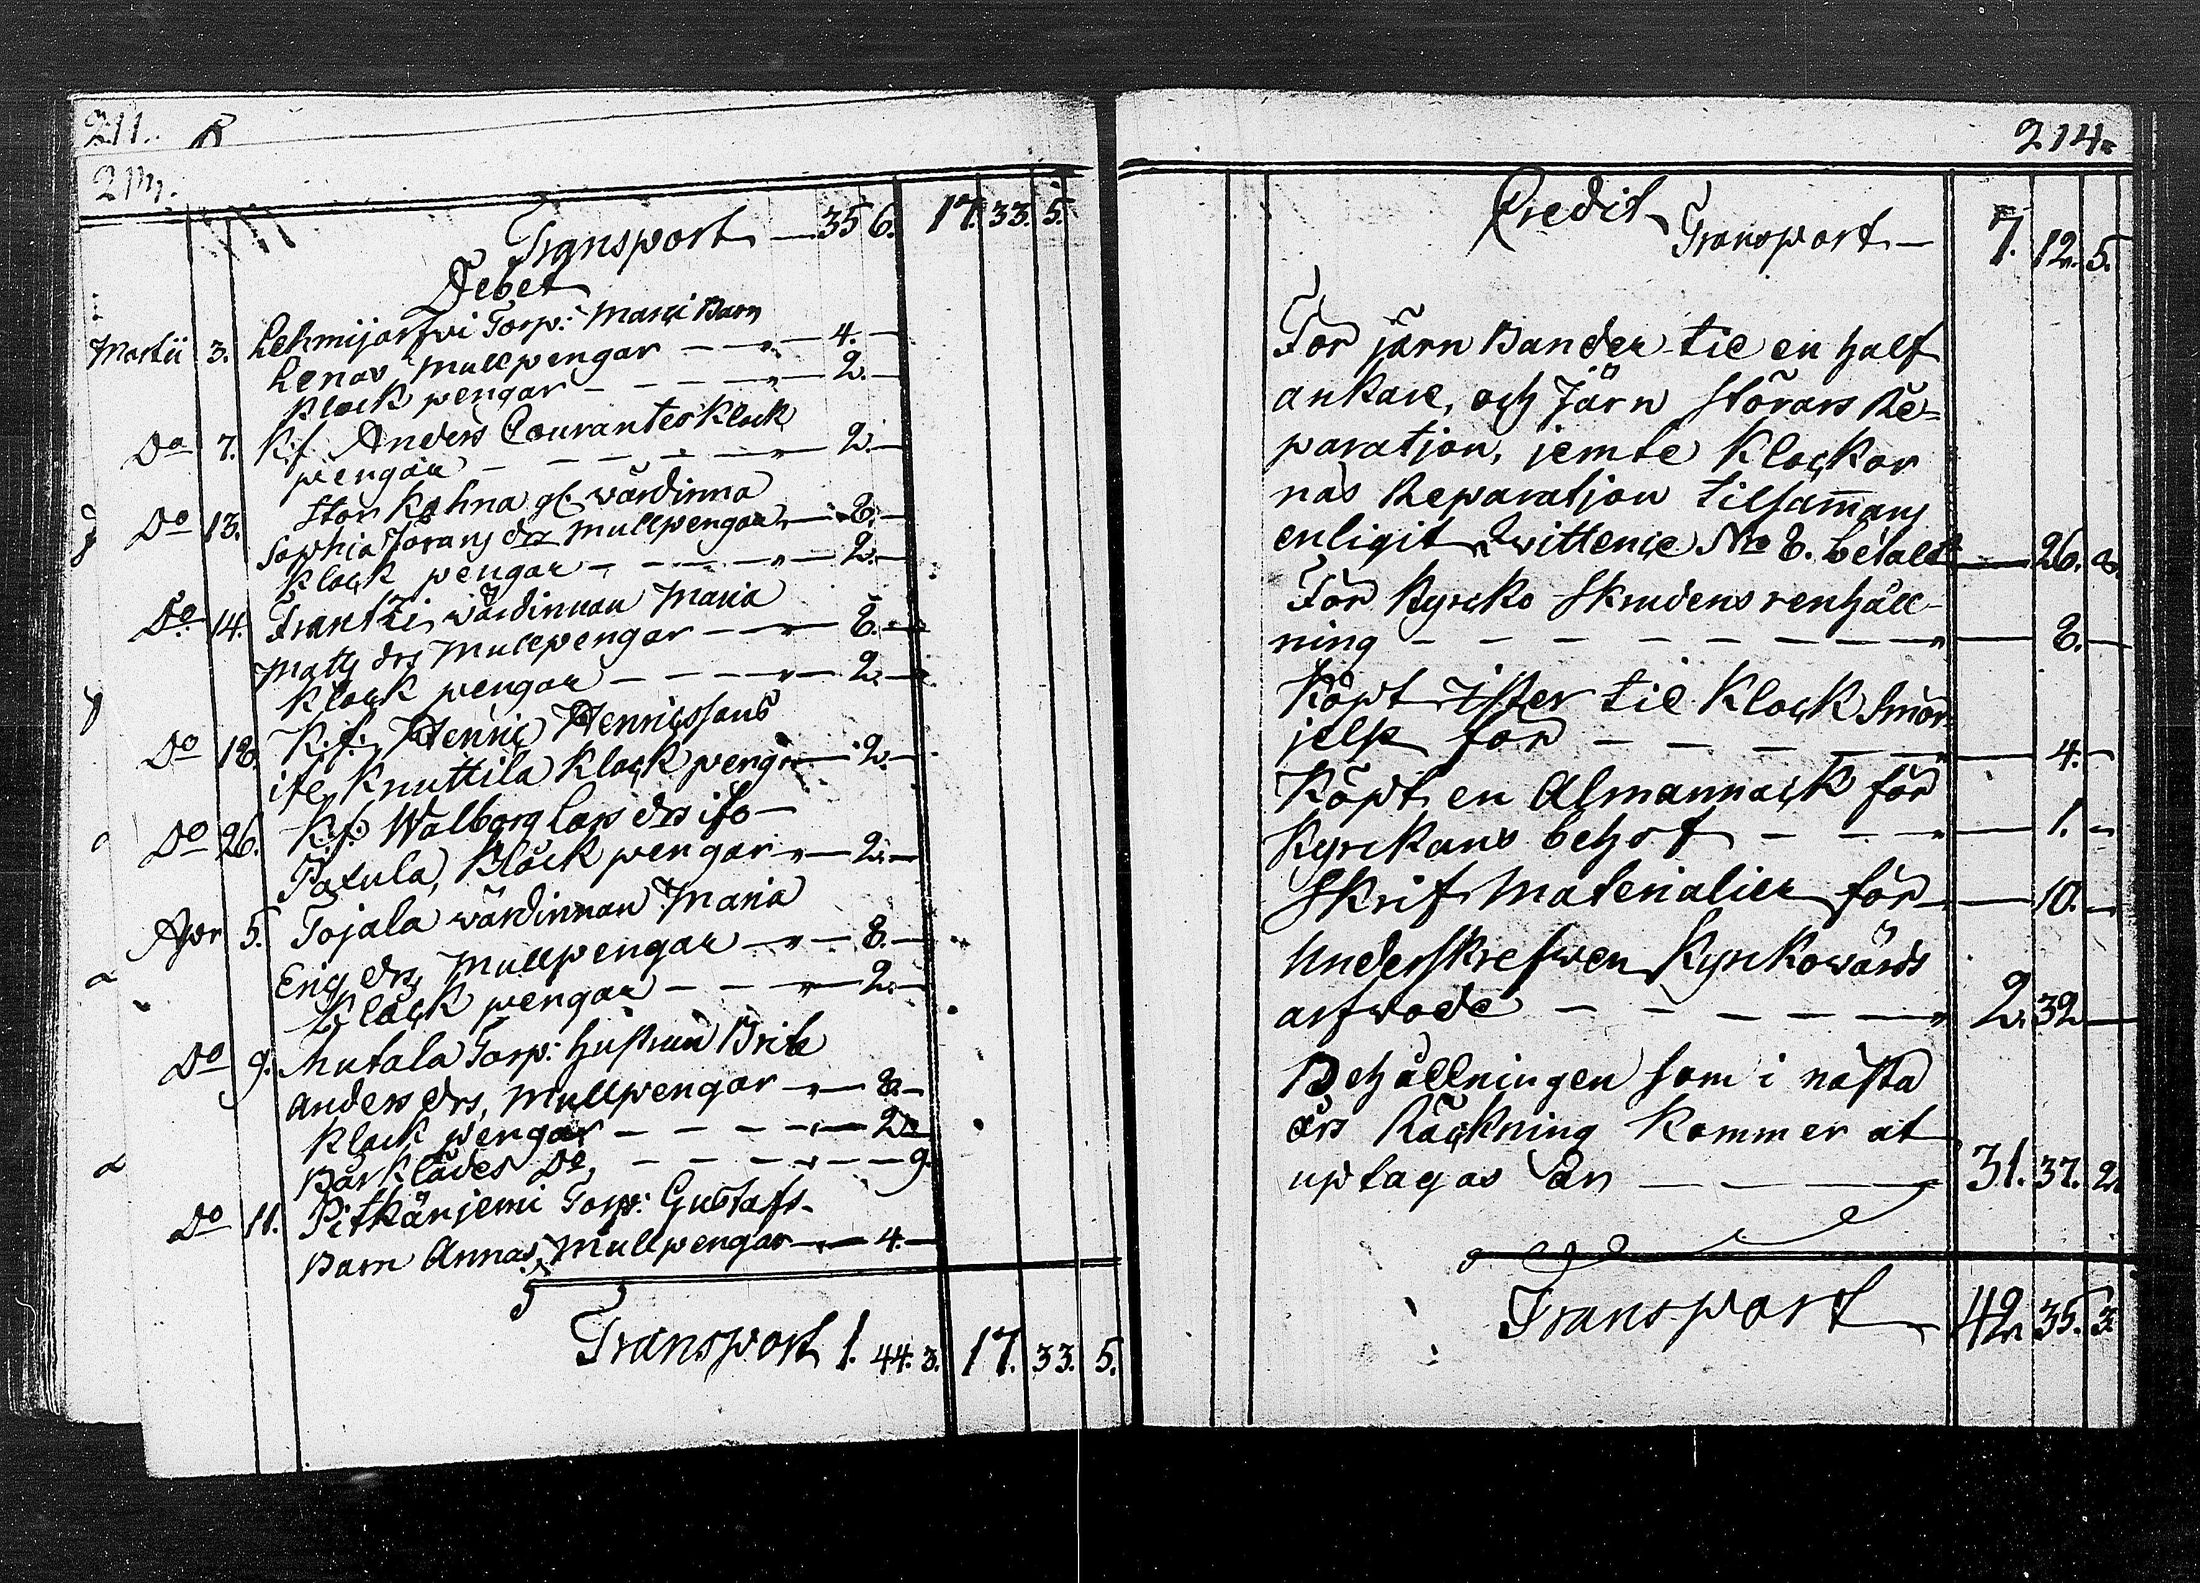 211.
214.
Transport — 35 6. 17. 33. 5.
Debet
Martii 3. Lehmijarfwi Torp: Mari Barn
Lenas Mullpengar — — " — 4. —
Klock pengar — — — — " — 2. —
Do 7. K:f. Anders Courantes Klock
pengar — — — — " — 2. —
Do 13. Stor Kohna gl. wärdinna
Sophia Jörans drr mullpengar " — 8. —
Klock pengar — — — " — 2. —
Do 14. Frantzi wärdinnan Maria
Matts drs Mullpengar — — " — 8. —
Klock pengar — — — " — 2. —
Do 18. K:f: Henric Henricssons
ifr. Knuttila Klock pengr — 2. —
Do 26. K:f: Walborg Lars drs ifr —
Paxula, Klock pengar " — 2. —
Apr 5. Tojala wärdinnan Maria
Eric drs Mullpengar — " — 8. —
Klock pengar — — " — 2. —
Do 9. Torp: Hustrun Brita
anders drs, Mullpengar — " — 8. —
Klock pengar — — — " — 2. —
Bårklädes Do, — — — " — 9.
Do 11. Pitkänjemi Torp: Gustafs
Barn Annas, Mullpengar — " — 4. —
Transport 1. 44. 3. 17. 33. 5.
Credit
Transport — 7. 12. 5.
För järn Bander til en half
ankare, och Järn störars Re=
paration, jemte Klockor
nas Reparation tilsamans
enligit Qvittence No 8. betalt — 26. 8.
För Kyrcko Skrudens renhåll-
ning — — — — — — — " — 8. —
Köpt Ister til Klock Smör
jelse för — — — — — " — 4. —
Köpt en Almannack för
Kyrckans behof — — — " — 1. —
Skrif Materialier för — 10. —
Underskrefwen Kyrkowärds
arfwode — — — — — " 2. 32 —
Behållningen som i nästa
års Räckning kommer at
uptagas är — — — 31. 37. 2.
Transport — 42. 35. 3.